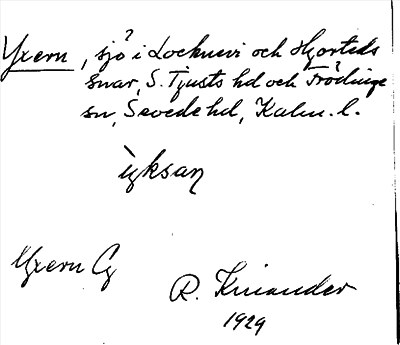 Yxern, sjö i Locknevi och Hjorteds
snar, S. Tjusts hd och Frödinge
sn, Sevede hd, Kalm. l.
ỳksan
Yxern Cg
R. Kinander
1929